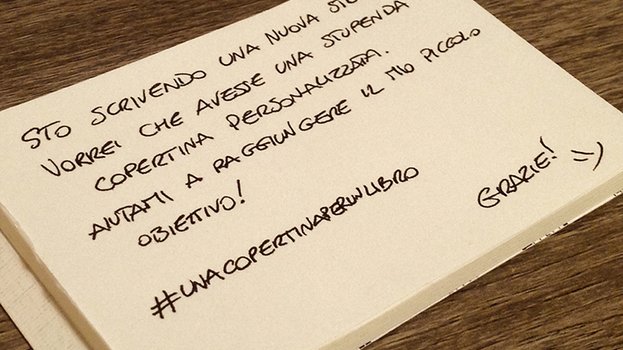 STO SCRIVENDO UNA NUOVA
VORREI CHE AVESSE UNA STUPENDA
COPERTINA PERSONALIZZATA.
AIUTAMI A RAGGIUNGERE IL MIO PICCOLO
OBIETTIVO!
GRAZIE! =)
#UNACOPERTINAPERUNLIBRO